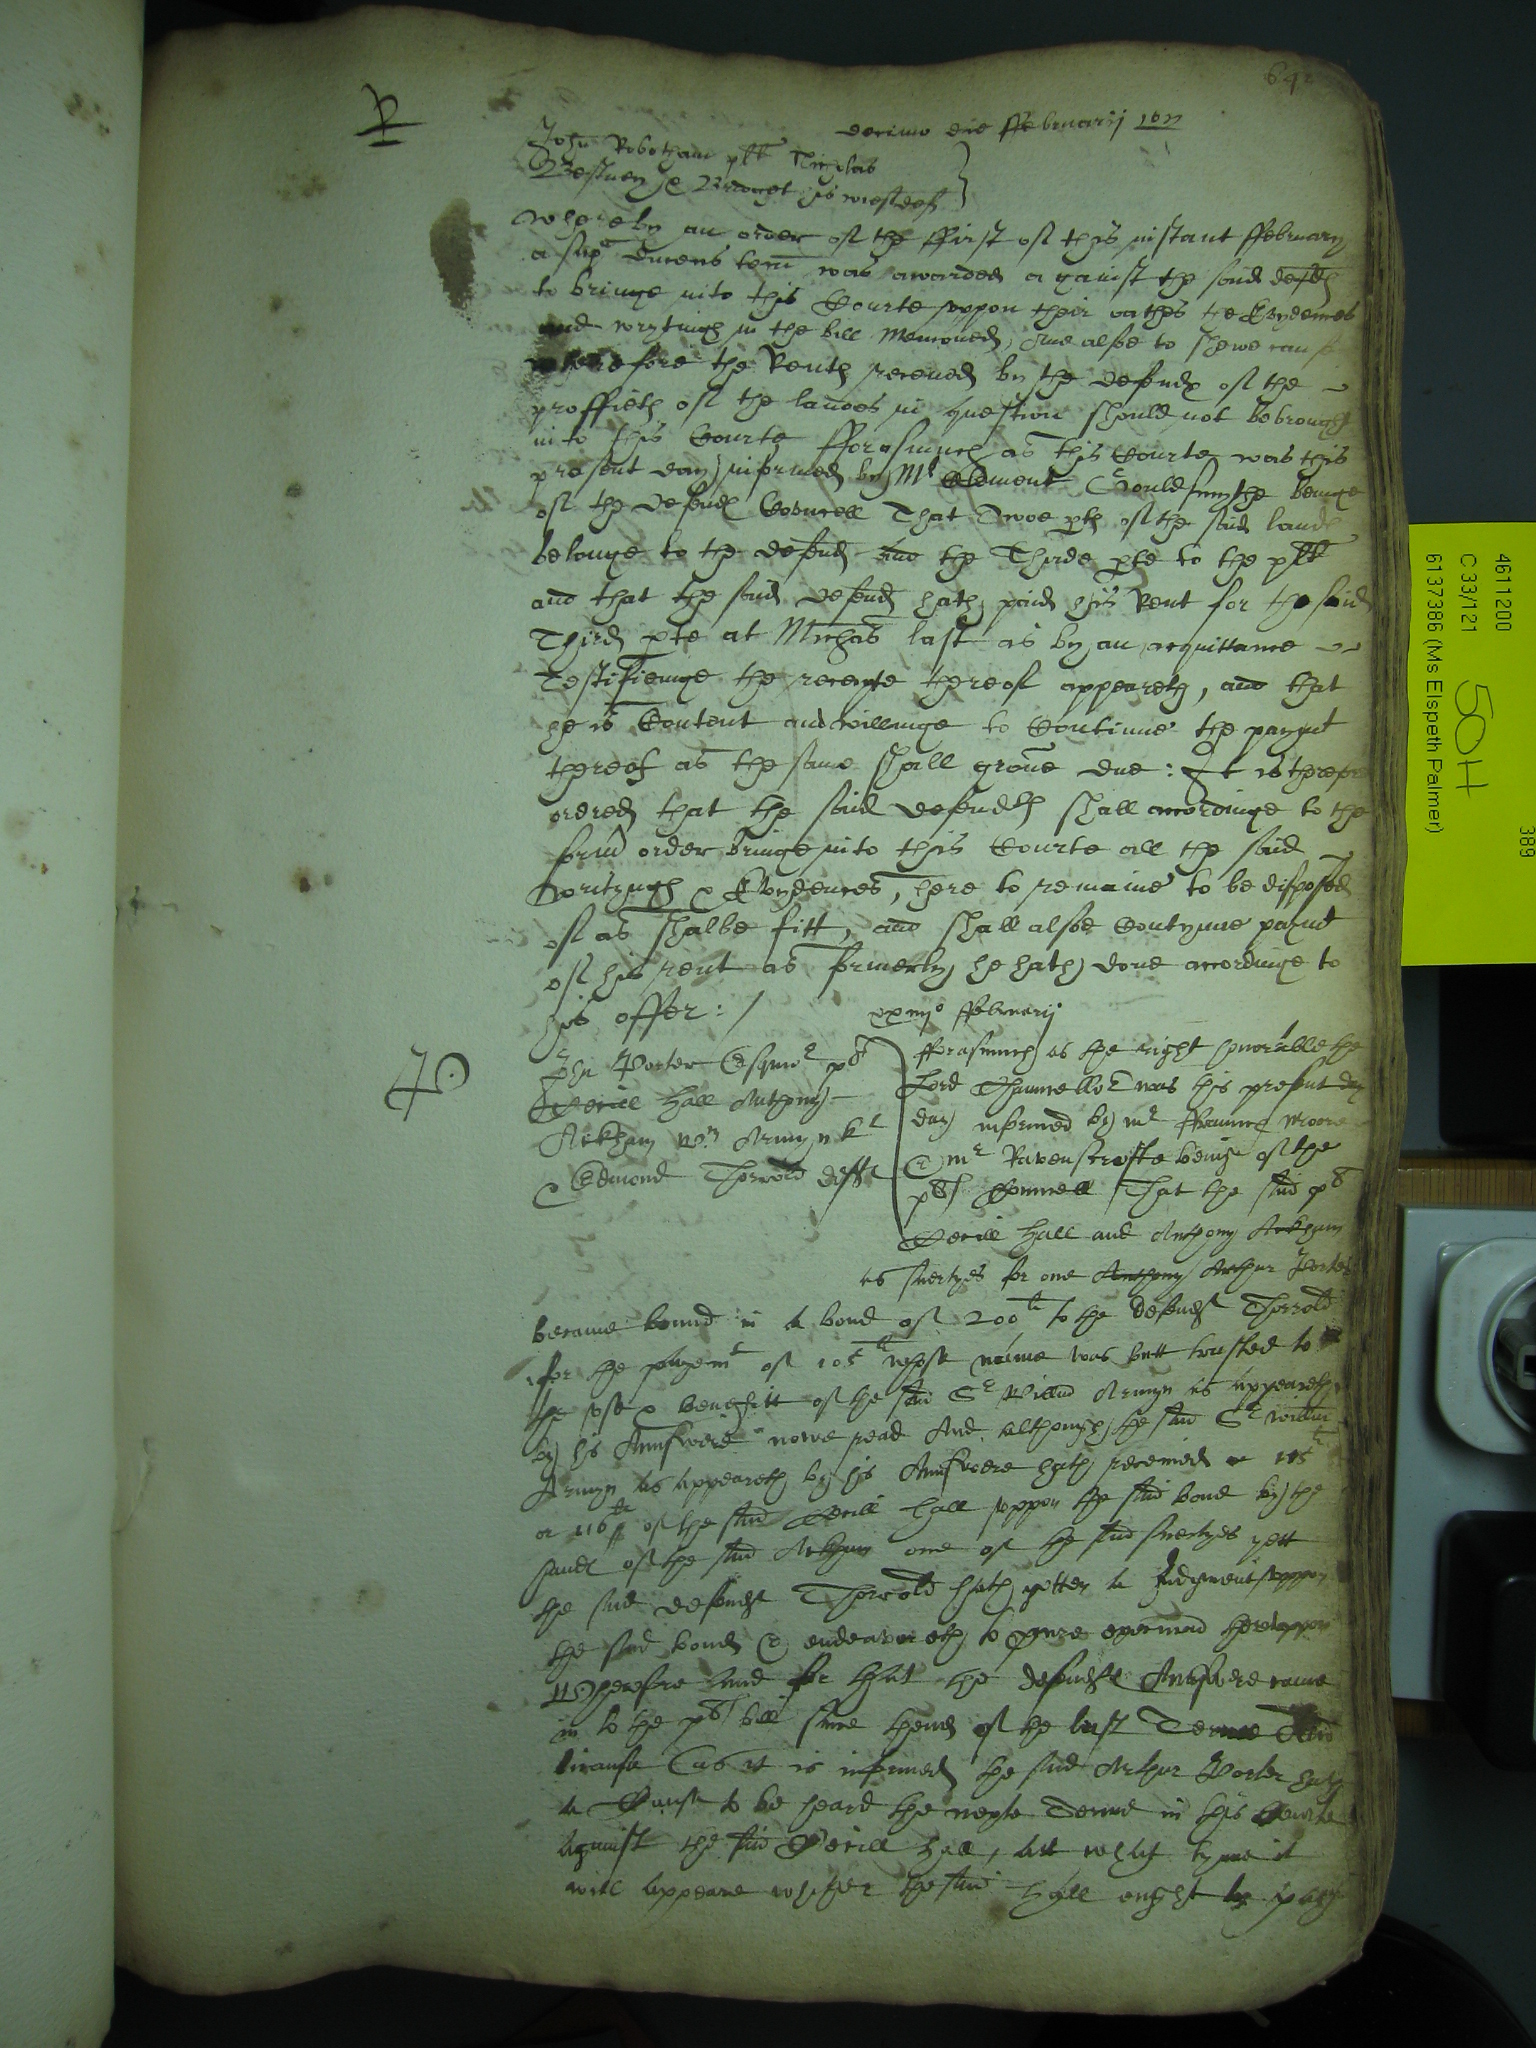 642
R
decimo die ffebruarij
John Robotham plt Nicholas
& Bridget his wief deftes
Whereby an order of the ffirst of this instant ffebruary
a sup ducens tecu was awarded against the said
to bringe into this Courte uppon their oathes the Evydences
and wrytings in the bill mencioned, And alsoe to shewe cause
wherefore the Rents receved by the defend of the
proffietts of the landes in question should not be brought
into this Courte fforasmuch as this Courte was this
present day informed by Mr Clement Gouldsmythe beinge
of the defend Councell That Twoe pts of the said lands
belonge to the defend and the Thirde pte to the plt
and that the said defend hath paid his Rent for the said
Third pte at Michas last as by an acquittance
Testifienge the receipte thereof appeareth, and that
he is Content and willinge to Continue the paymt
thereof as the same shall growe due: It is therefore
ordered that the said defendts shall accordinge to the
form order bringe into this Courte all the said
wrytings & Evydences, there to remaine to be disposed
of as shalbe fitt, and shall alsoe Contynue paymt
of his rent as formerly he hath done accordinge to
his offer: /
ffebruarij
P
Jhn Porter Esquier plt
Hall Anthony
Arkham Armyn kt
& Edmond Thorrold defts
fforasmuch as the right honorable the
Lord Chauncellor was this present day
day informed by mr ffrauncis Moore
& mr Ravenscrofte beinge of the
plts Councell That the said plt
Hall and Anthony Arkham
as suertyes for one Anthony Arthur Porter
became bound in a bond of 200li to the defendt Thorrold
for the payment of 105li whose name was butt trusted to
the use & benefitt of the said Sr Willm Armyn as appeareth
by his Answere nowe read And although the said Sr Willm
Armyn as appeareth by his Answere hath received
or 110li of the said Hall uppon the said bond by the
hands of the said Arkham one of the said suertyes yett
the said defendt Thorrold hath gotten a Judgment uppon
the said bond & endeavoreth to pcure execucion thereuppon
Wherefore And for that the defendts Answere came
in to the plts bill since thend of the last Terme And
because (as it is informed the said Arthur Porter hath
a Cause to be heard the nexte Terme in this Courte
against the said Hall, att which tyme it
will appeare whether the said Hall ought to pay
4611200
C 33/121
6137386 (Ms Elspeth Palmer)
50H
389